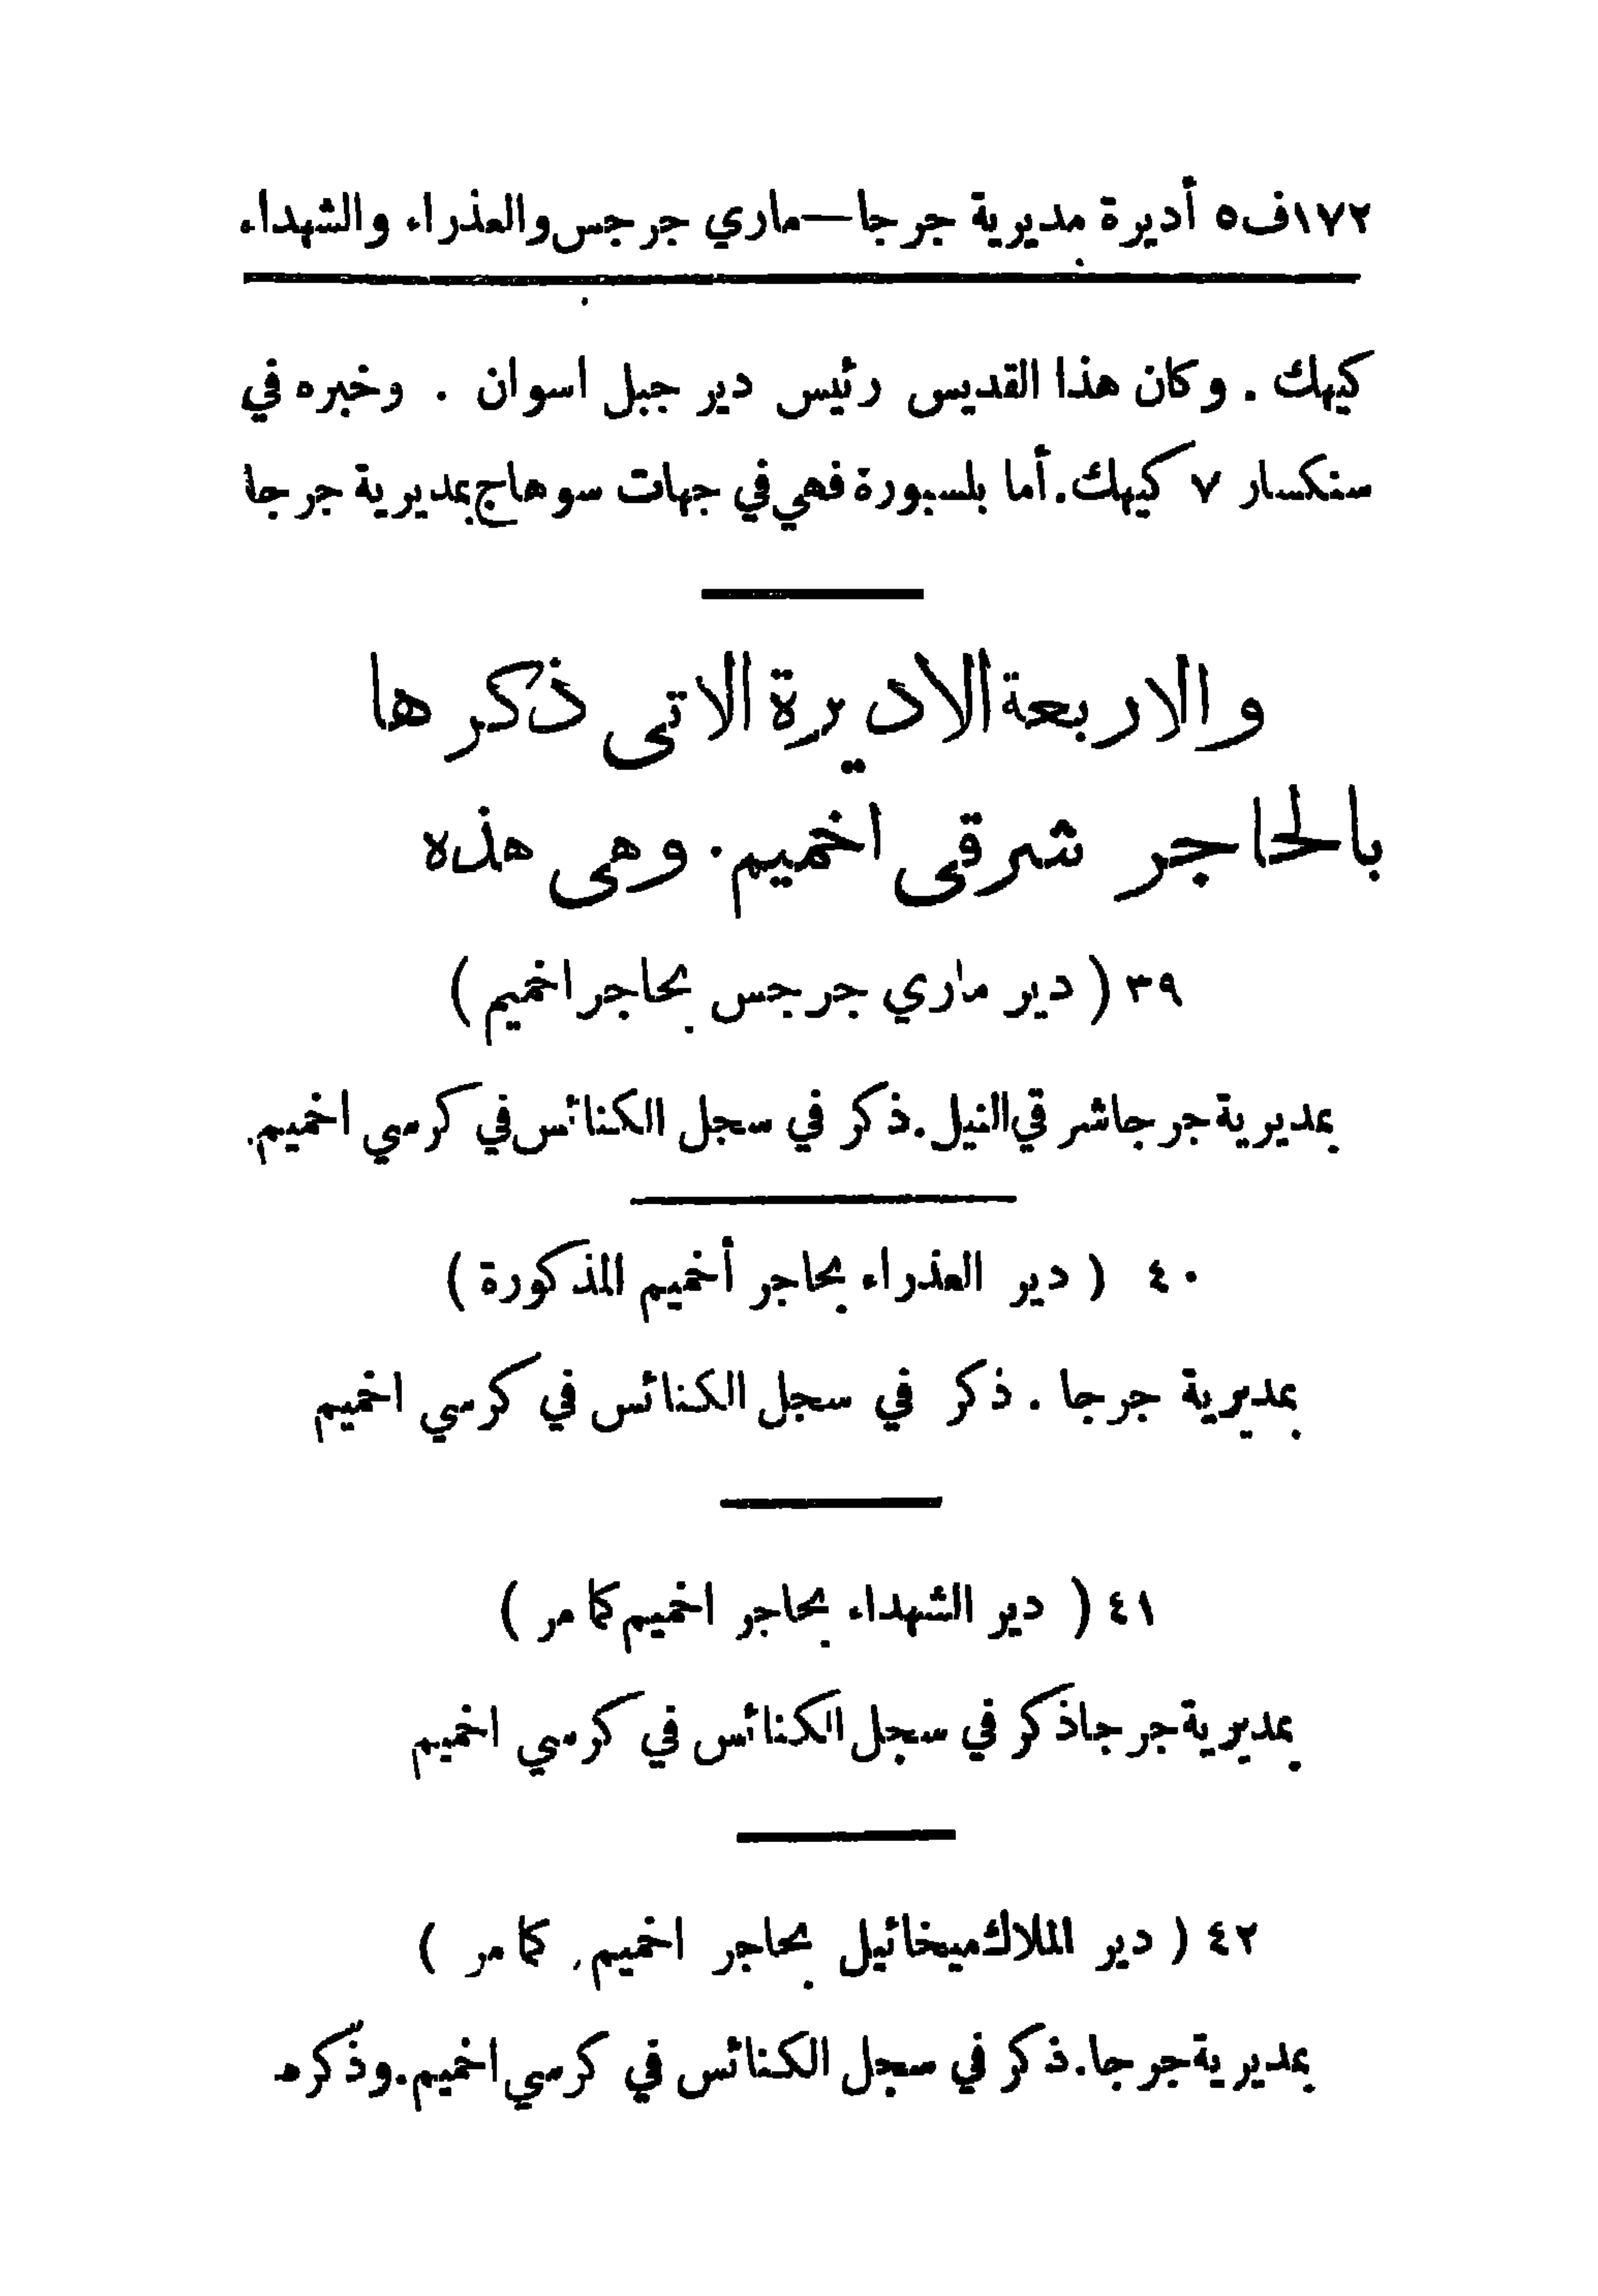 ١٧٢ف٥ أديرة مديرية جرجا—ماري جرجس والعذراء والشهداء
كيهك . وكان هذا القديس رئيس دير جبل اسوان . وخبره في
سنكسار ٧ كيهك. أما بلسبورة فهي في جهات سوهاج بمديرية جرجا
والاربعة الاديرة الاتى ذكرها
بالحاجر شرقى اخميم . وهى هذه
٣٩ ( دير ماري جرجس بحاجر اخميم )
بمديرية جرجا شرقي النيل . ذكر في سجل الكنائس في كرسي اخميم.
٤٠ ( دير العذراء بحاجر أخميم المذكورة )
بمديرية جرجا . ذكر في سجل الكنائس في كرسي اخميم
٤١ ( دير الشهداء بحاجر اخميم كما مر )
بمديرية جرجا ذكر في سجل الكنائس في كرسي اخميم
٤٢ ( دير الملاك ميخائيل بحاجر اخميم . كما مر )
بمديرية جرجا. ذكر في سجل الكنائس في كرسي اخميم . وذكره